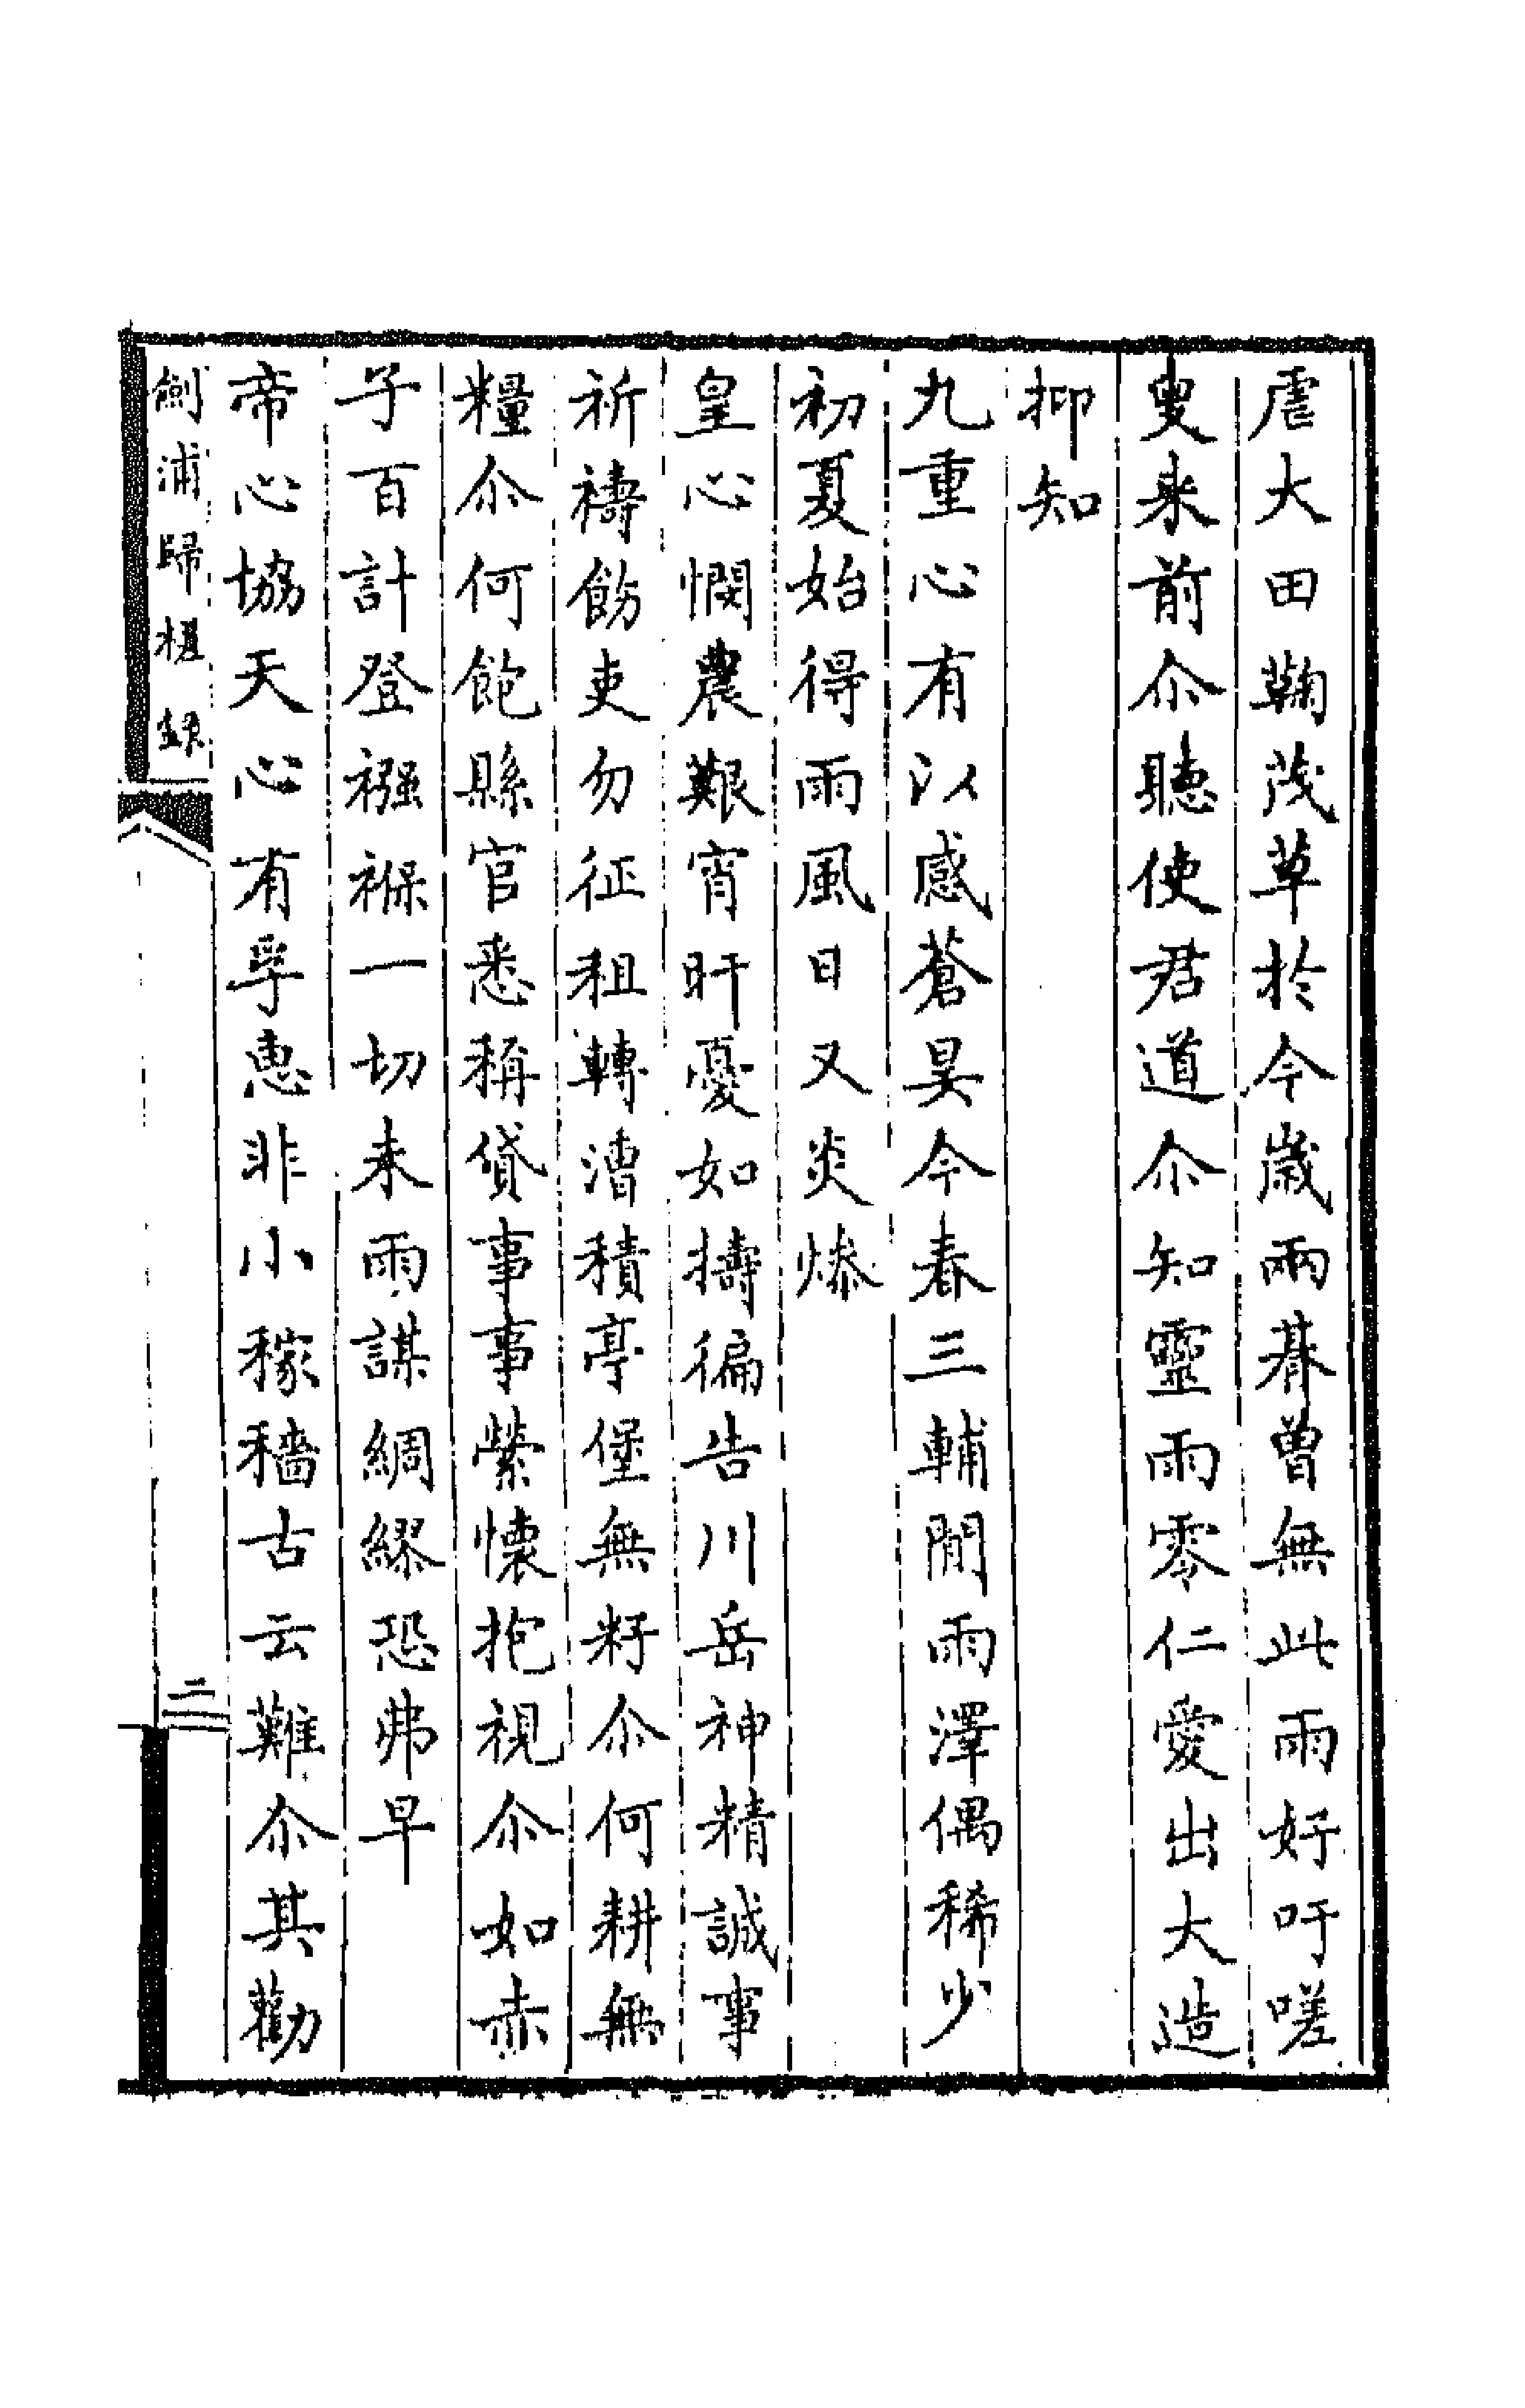 虐大田鞠茂草於今歲兩朞曾無此雨好吁嗟
叟来前尒聽使君道尒知靈雨零仁愛出大造
抑知
九重心有以感蒼昊今春三輔閒雨澤偶稀少
初夏始得雨風日又炎燥
皇心憫農艱宵旰憂如擣徧告川岳神精誠事
祈禱飭吏勿征租轉漕積亭堡無籽尒何耕無
糧尒何飽縣官悉稱貸事事縈懷抱視尒如赤
子百計登襁褓一切未雨謀綢繆恐弗早
帝心協天心有孚惠非小稼穡古云難尒其勸
劍浦歸槎錄
二